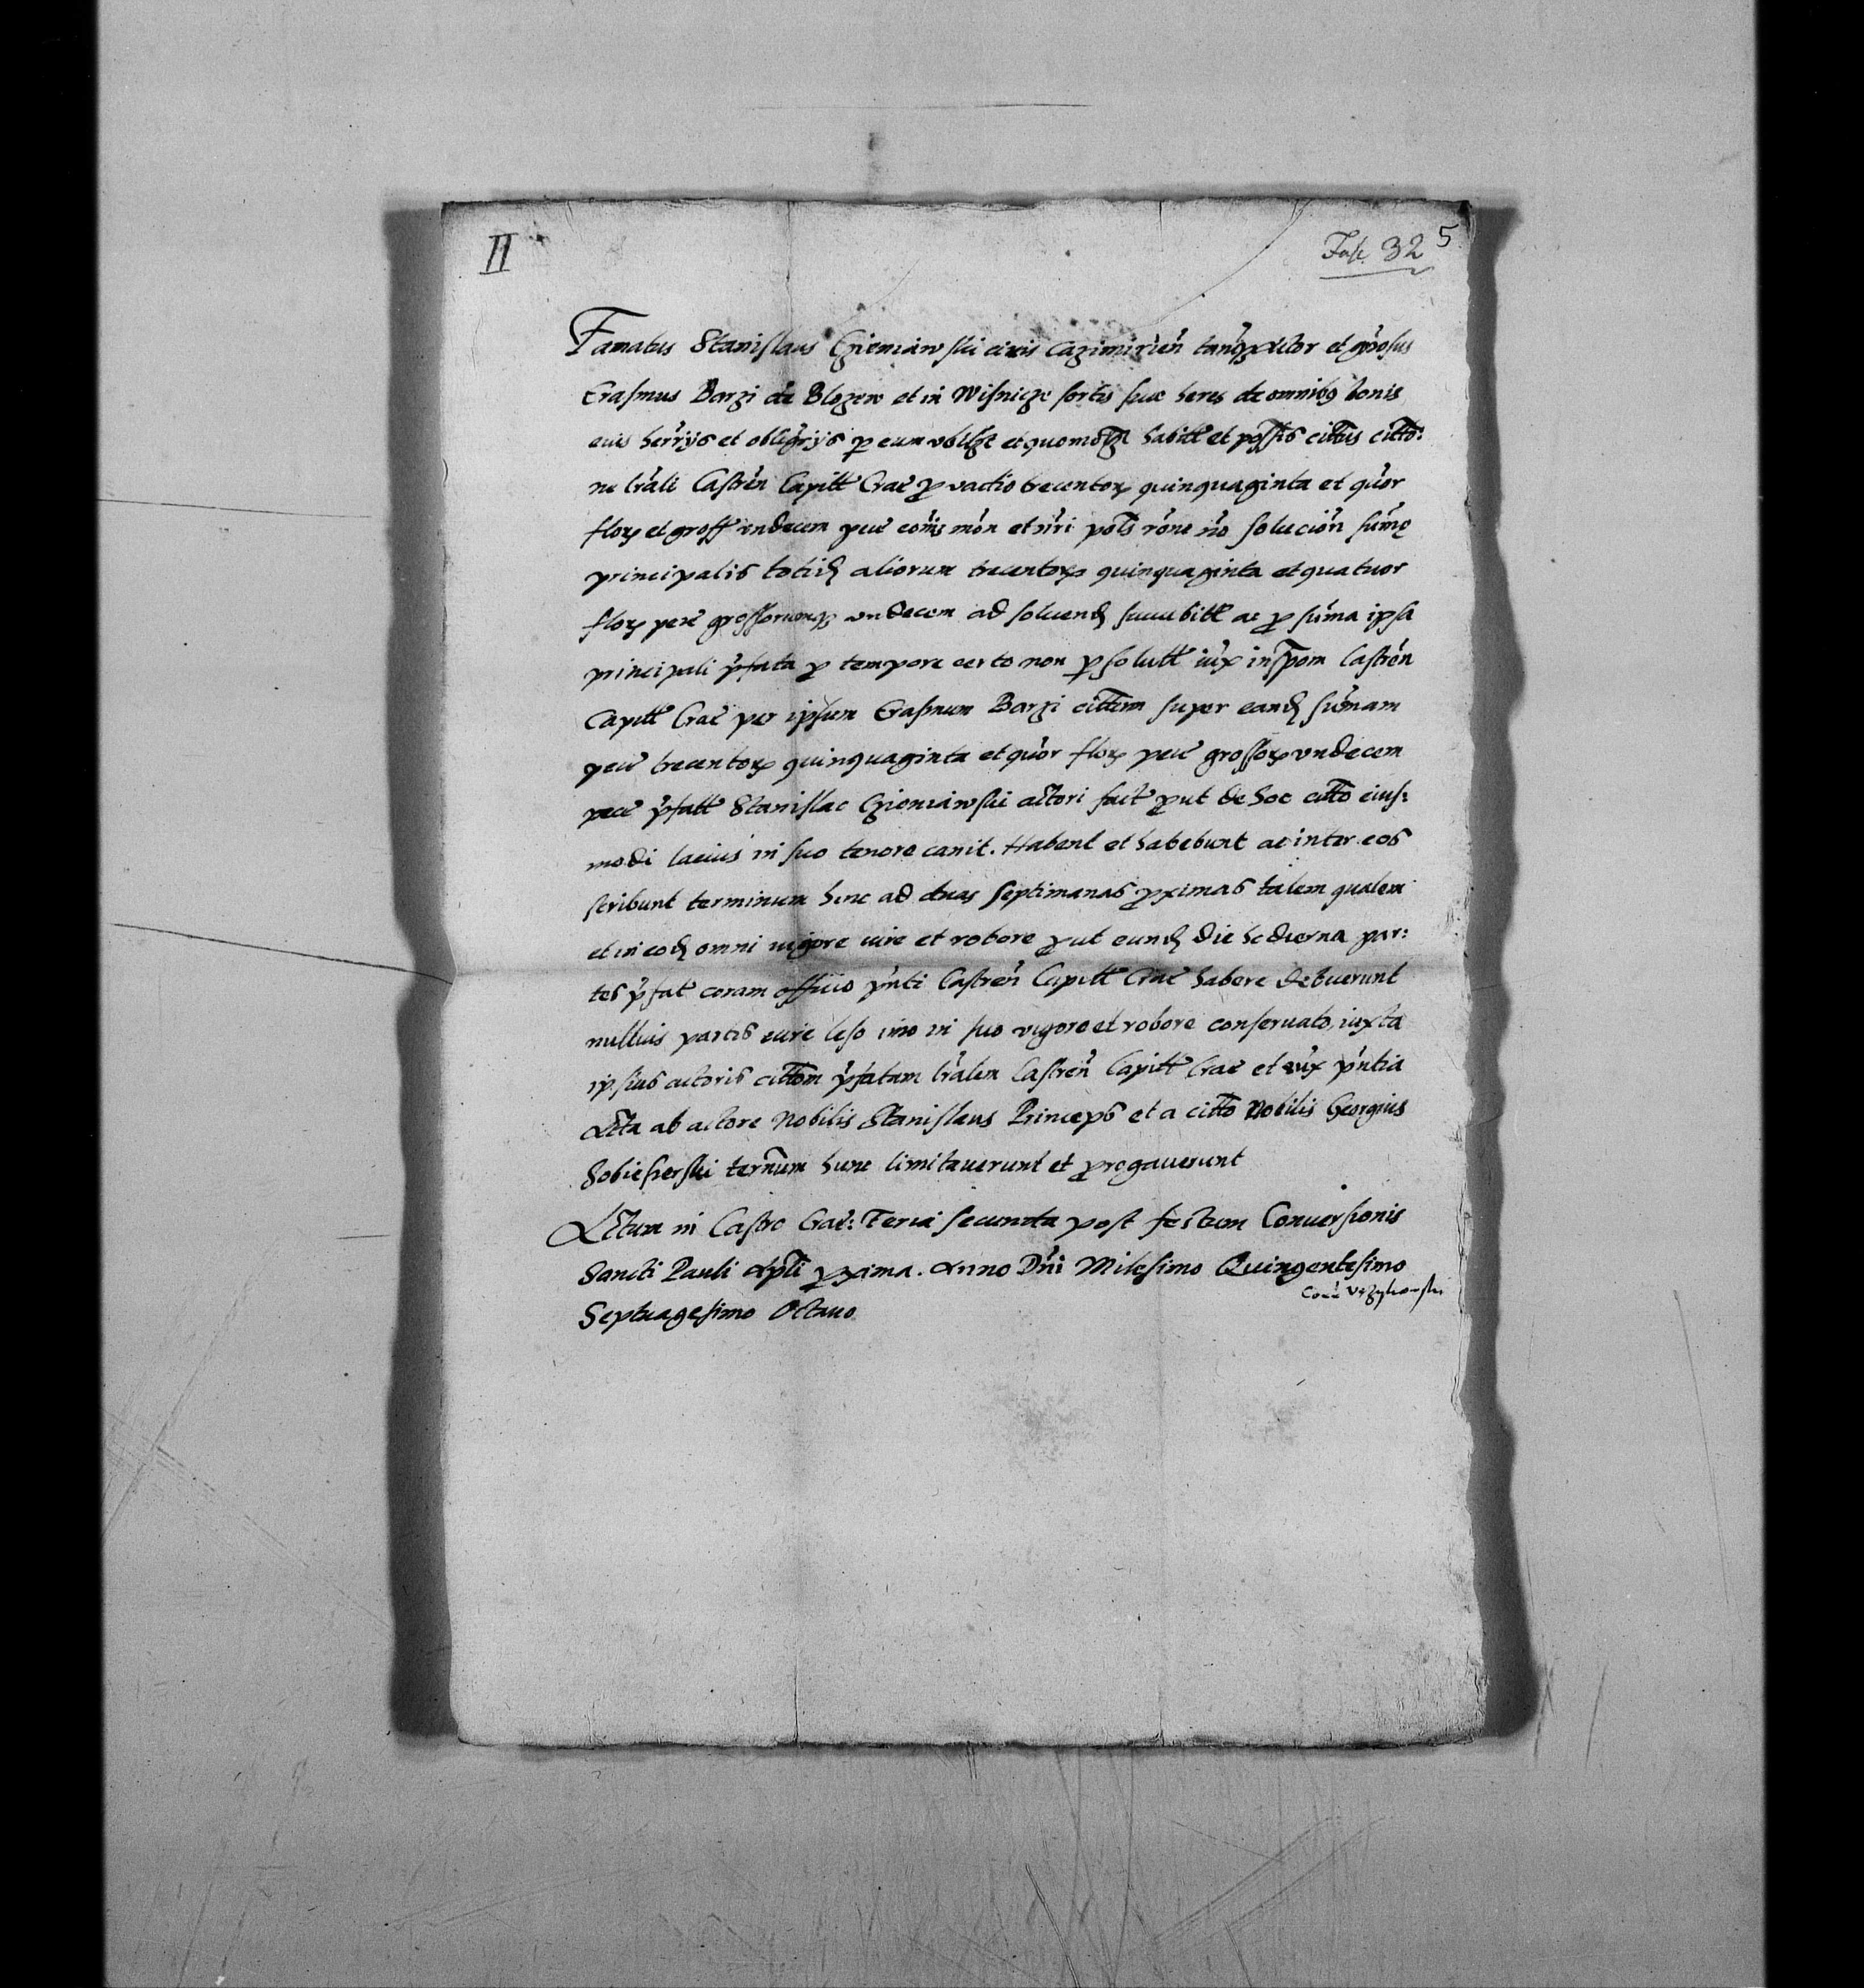 II
Fasc. 32 5
Famatus Stanislaus Cziemiawski civis Cazimirien tanq actor et gnosus
Erasmus Barzi de Blozew et in Wisnicze sortis sue heres de omnibq bonis
euis herrijs et obligrijs p eum vbilzt et quomolzt habitt et possis cittus citto:
ne lrali Castren Capitt Crac p vadio trecentorx quinquaginta et quor
florx et gross vndecem pecc cois mon et nri pols rone no solucion sume
principalis totid aliorum trecentorx quinquaginta et quatuor
florx pece grossorumqz vndecem ad soluend succubitt ac p suma ipsa
principali pfata p tempore certo non psolutt iux inspom Castren
Capitt Crac per ipsum Erasmum Barzi cittum super eand sumam
pecc trecentorx quinquaginta et quor florx pecc grossorx vndecem
pece pfatt Stanislao Cziemiawski actori fact put de hoc citto eius:
modi lacius in suo tenore canit. Habent et habebunt ac inter eos
scribunt terminum hinc ad duas septimanas pximas talem qualem
et in eod omni vigore iure et robore put eund die hodierna par:
tes pfat coram officio pnti Castren Capitt Crac habere debuerunt
nullius partis iure leso imo in suo vigore et robore conseruato, iuxta
ipsius actoris cittom pfatam lralem Castren Capitt Crac et iux pntia
Acta ab actore Nobilis Stanislaus Princeps et a citto Nobilis Georgius
Sobiesierski ternum hunc limitauerunt et progauerunt
Actum in Castro Crac: Feria secunda post festum Conuersionis
Sancti Pauli Apli pxima. Anno Dni Milesimo Quingentesimo
Septuagesimo Octauo